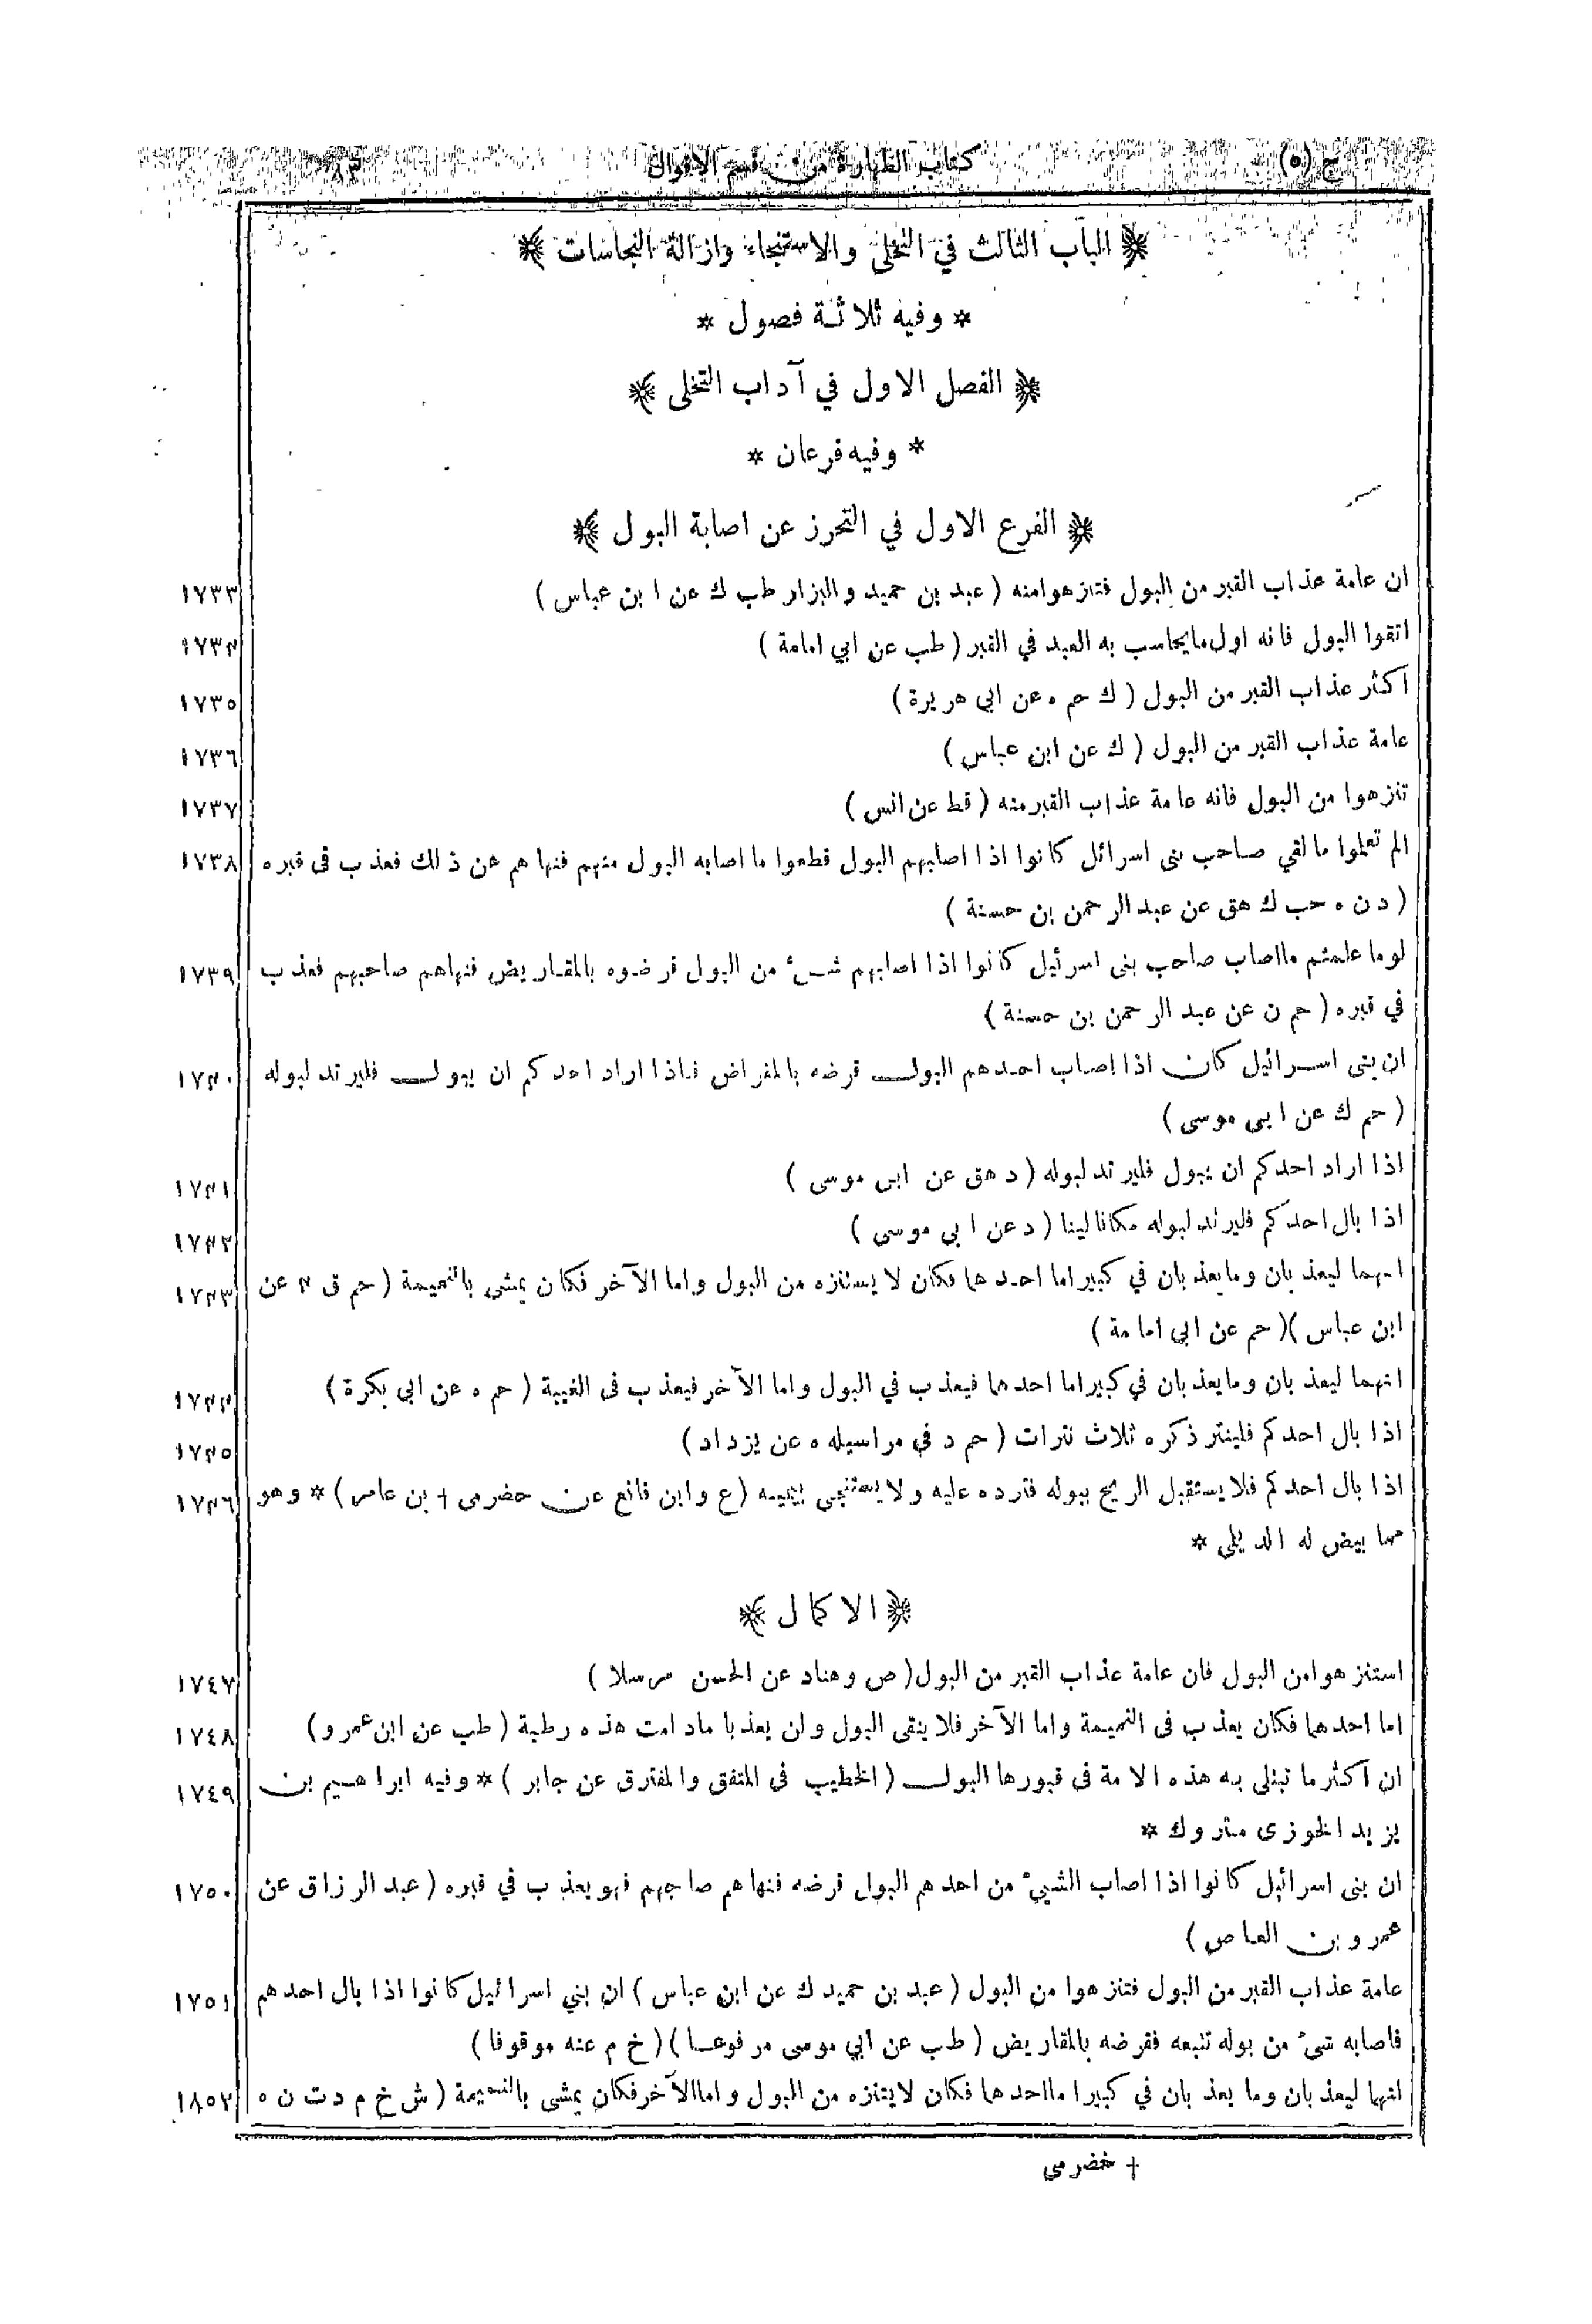 ج (٥) كتاب الطهارة من قسم الاقوال ٨٣
﴿ الباب الثالث في التخلى والاستنجاء وازالة النجاسات ﴾
* وفيه ثلاثة فصول *
﴿ الفصل الاول في آداب التخلى ﴾
* وفيه فرعان *
﴿ الفرع الاول في التحرز عن اصابة البول ﴾
ان عامة عذاب القبر من البول فتنزهوا منه ( عبد بن حميد والبزار طب ك عن ابن عباس ) ١٧٣٣
اتقوا البول فانه اول ما يحاسب به العبد في القبر ( طب عن ابي امامة ) ١٧٣٤
اكثر عذاب القبر من البول ( ك حم ه عن ابي هريرة ) ١٧٣٥
عامة عذاب القبر من البول ( ك عن ابن عباس ) ١٧٣٦
تنزهوا من البول فانه عامة عذاب القبر منه ( قط عن انس ) ١٧٣٧
الم تعلموا ما لقي صاحب بنى اسرائل كانوا اذا اصابهم البول قطعوا ما اصابه البول منهم فنهاهم عن ذلك فعذب فى قبره ١٧٣٨
( د ن ه حب ك هق عن عبد الرحمن بن حسنة )
لو ما علمتم ما اصاب صاحب بنى اسرئيل كانوا اذا اصابهم شئ من البول قرضوه بالمقاريض فنهاهم صاحبهم فعذب ١٧٣٩
في قبره ( حم ن عن عبد الرحمن بن حسنة )
ان بنى اسرائيل كان اذا اصاب احدهم البول قرضه بالمقراض فاذا اراد احدكم ان يبول فليرتد لبوله ١٧٤٠
( حم ك عن ابى موسى )
اذا اراد احدكم ان يبول فليرتد لبوله ( د هق عن ابى موسى ) ١٧٤١
اذا بال احدكم فليرتد لبوله مكانا لينا ( د عن ابي موسى ) ١٧٤٢
انهما ليعذبان وما يعذبان في كبير اما احدهما فكان لا يستنزه من البول واما الآخر فكان يمشى بالنميمة ( حم ق ٤ عن ١٧٤٣
ابن عباس )( حم عن ابي امامة )
انهما ليعذبان وما يعذبان في كبير اما احدهما فيعذب في البول واما الآخر فيعذب فى الغيبة ( حم ه عن ابي بكرة ) ١٧٤٤
اذا بال احدكم فلينتر ذكره ثلاث نترات ( حم د في مراسيله ه عن يزداد ) ١٧٤٥
اذا بال احدكم فلا يستقبل الريح ببوله فترده عليه ولا يستنجى بيمينه ( ع وابن قانع عن حضرمى † بن عامر ) * وهو ١٧٤٦
مما بيض له الديلى *
﴿ الاكمال ﴾
استنزهوا من البول فان عامة عذاب القبر من البول ( ص وهناد عن الحسن مرسلا ) ١٧٤٧
اما احدهما فكان يعذب فى النميمة واما الآخر فلا يتقى البول ولن يعذبا مادامت هذه رطبة ( طب عن ابن عمرو ) ١٧٤٨
ان اكثر ما تبتلى به هذه الامة فى قبورها البول ( الخطيب في المتفق والمفترق عن جابر ) * وفيه ابراهيم بن ١٧٤٩
يزيد الخوزى متروك *
ان بنى اسرائيل كانوا اذا اصاب الشيئ من احدهم البول قرضه فنهاهم صاحبهم فهو يعذب في قبره ( عبد الرزاق عن ١٧٥٠
عمرو بن العاص )
عامة عذاب القبر من البول فتنزهوا من البول ( عبد بن حميد ك عن ابن عباس ) ان بني اسرائيل كانوا اذا بال احدهم ١٧٥١
فاصابه شئ من بوله تتبعه فقرضه بالمقاريض ( طب عن ابي موسى مرفوعا ) ( خ م عنه موقوفا )
انهما ليعذبان وما يعذبان في كبير اما احدهما فكان لا يتنزه من البول واما الآخر فكان يمشى بالنميمة ( ش خ م د ت ن ه ١٨٥٢
† خضرمى